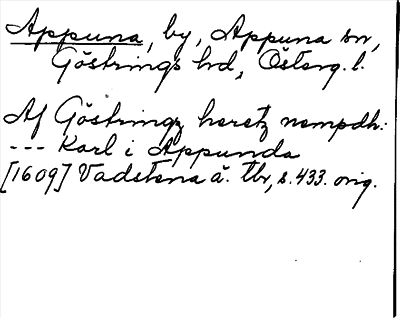 Appuna, by, Appuna sn,
Göstrings hd, Österg. l.
Af Göstringz heretz nempdh:
--- Karl i Appunda
[1609] Vadstena ä. tb, s. 433. orig.